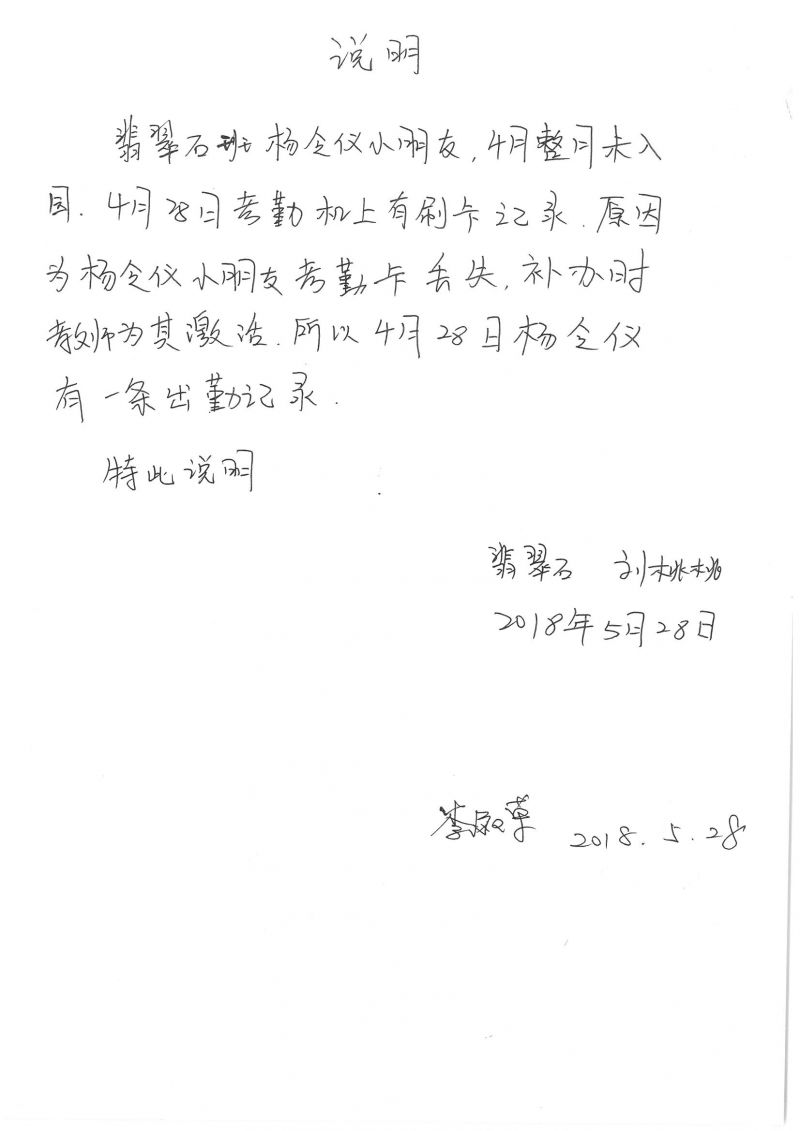 说明
翡翠石班杨令仪小朋友,4月整月未入
园.4月28日考勤机上有刷卡记录.原因
为杨令仪小朋友考勤卡丢失,补办时
教师为其激活.所以4月28日杨令仪
有一条出勤记录.
特此说明
翡翠石 刘桃桃
2018年5月28日
2018.5.28